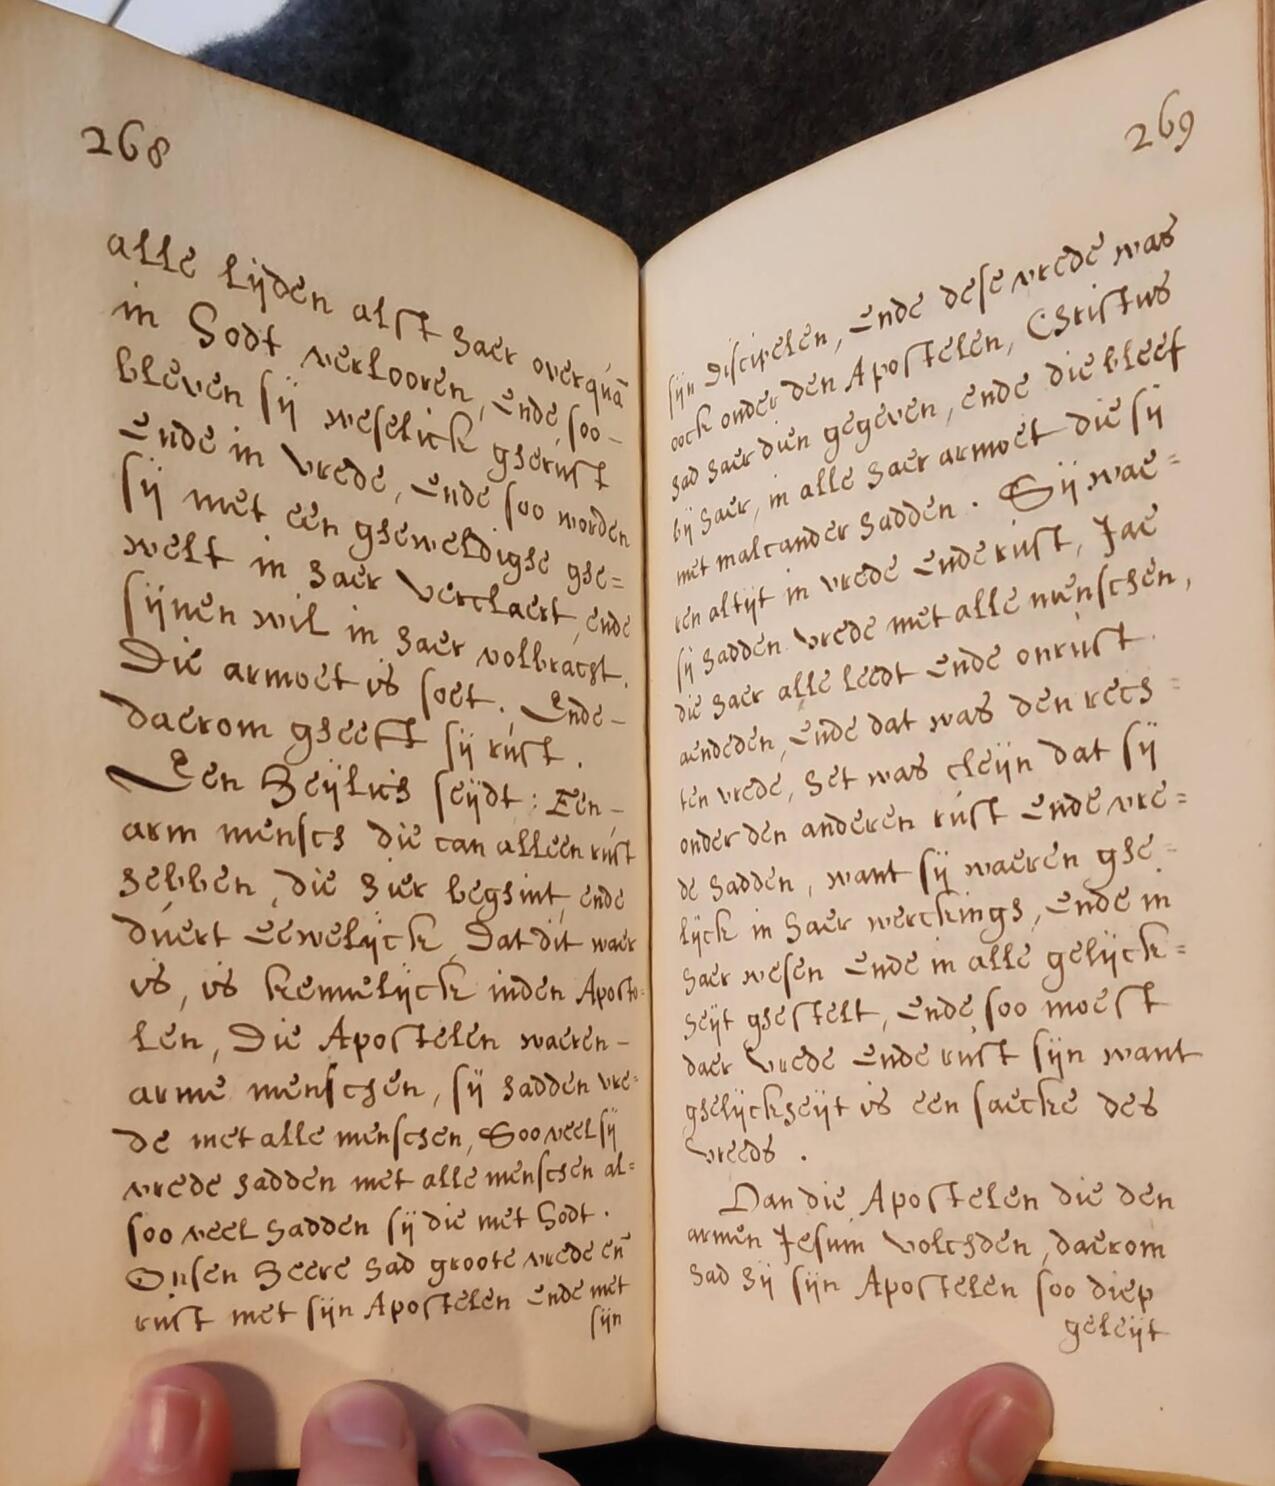 268
alle lijden alst haer overquā
in Godt verlooren, ende soo-
bleven sij weselick gherust
ende in vrede, ende soo worden
sij met een gheweldighe ghe=
welt in haer verclaert, ende
sijnen wil in haer volbracht.
Die armoet is soet. Ende-
daerom gheeft sij rust.
Een Heijlich seijdt: Een-
arm mensch die can alleen rust
hebben, die hier beghint, ende
duert eewelijck, Dat dit waer
is, is kennelijck inden Aposto=
len, Die Apostelen waeren-
arme menschen, sij hadden vre=
de met alle menschen, Soo veel sij
vrede hadden met alle menschen al=
soo veel hadden sij die met Godt.
Onsen Heere had groote vrede eñ
rust met sijn Apostelen ende met
sijn
269
sijn Discipelen, ende dese vrede was
oock onder den Apostelen, Christus
had haer dien gegeven, ende die bleef
bij haer, in alle haer armoet die sij
met malcander hadden. Sij wae=
ren altijt in vrede ende rust, Jae
sij hadden vrede met alle menschen,
die haer alle leedt ende onrust
aendeden, ende dat was den rech=
ten vrede, het was cleijn dat sij
onder den anderen rust ende vre=
de hadden, want sij waeren ghe=
lijck in haer werckingh, ende in
haer wesen ende in alle gelijck=
heijt ghestelt, ende soo moest
daer vrede ende rust sijn want
ghelijckheijt is een saecke des
vreeds.
Dan die Apostelen die den
armen Jesum volchden, daerom
had hij sijn Apostelen soo diep
geleijt